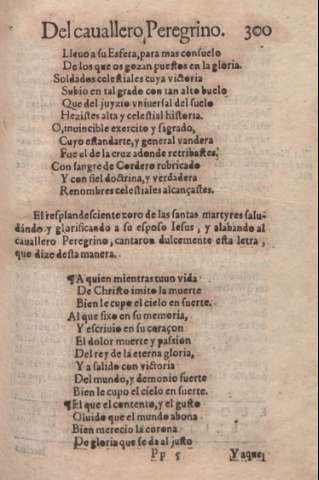 Del cauallero Peregrino. 300
Lleuo a su Esfera, para mas consuelo
De los que os gozan puestos en la gloria.
Soldados celestiales cuya victoria
Subio en tal grado con tan alto buelo
Que del juyzio vniuersal del suelo
Hezistes alta y celestial historia.
O, inuincible exercito y sagrado,
Cuyo estandarte, y general vandera
Fue el de la cruz adonde
Con sangre de Cordero rubricado
Y con fiel doctrina, y verdadera
Renombres celestiales alcançastes.
El resplandesciente coro de las santas martyres salu-
dando y glorificando a su esposo Iesus, y alabando al
cauallero Peregrino, cantaron dulcemente esta letra,
que dize desta manera.
¶A quien mientras tuuo vida
De Christo imito la muerte
Bien le cupo el cielo en suerte.
Al que fixo en su memoria,
Y escriuio en su coraçon
El dolor muerte y passion
Del rey de la eterna gloria,
Y a salido con victoria
Del mundo, y demonio fuerte
Bien le cupo el cielo en suerte.
¶El que el contento, y el gusto
Oluido que el mundo abona
Bien merecio la corona
De gloria que se da al justo
Pp 5 Y aque